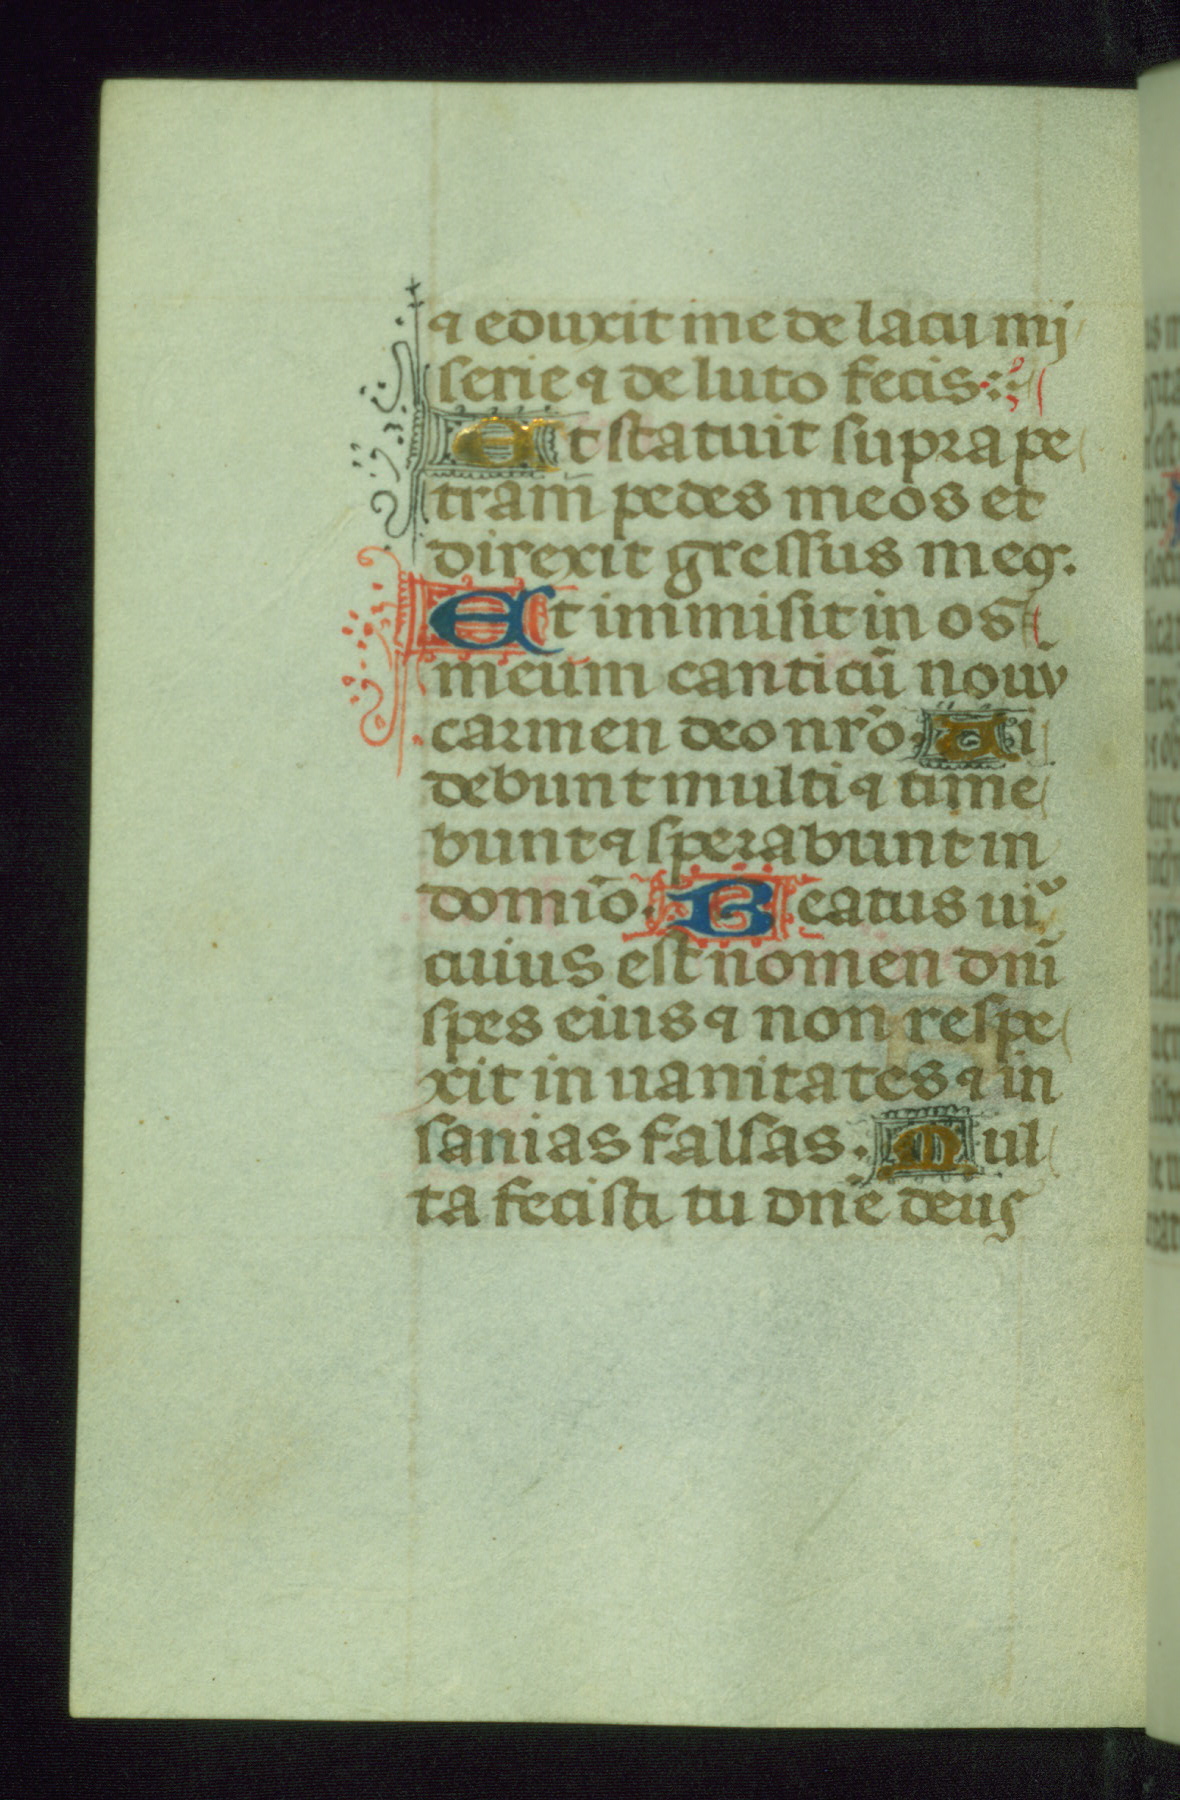 ⁊ eduxit me de lacu mi
serie ⁊ de luto fecis:
Et statuit supra pe
tram pedes meos et
direxit gressus meos.
Et immisit in os
meum canticū nouū
carmen deo nr̄o. Ui
debunt multi ⁊ time
bunt ⁊ sperabunt in
domīo. Beatus uir
cuius est nomen dn̄i
spes eius ⁊ non respe
xit in uanitates ⁊ in
sanias falsas. Mul
ta fecisti tu dn̄e deus